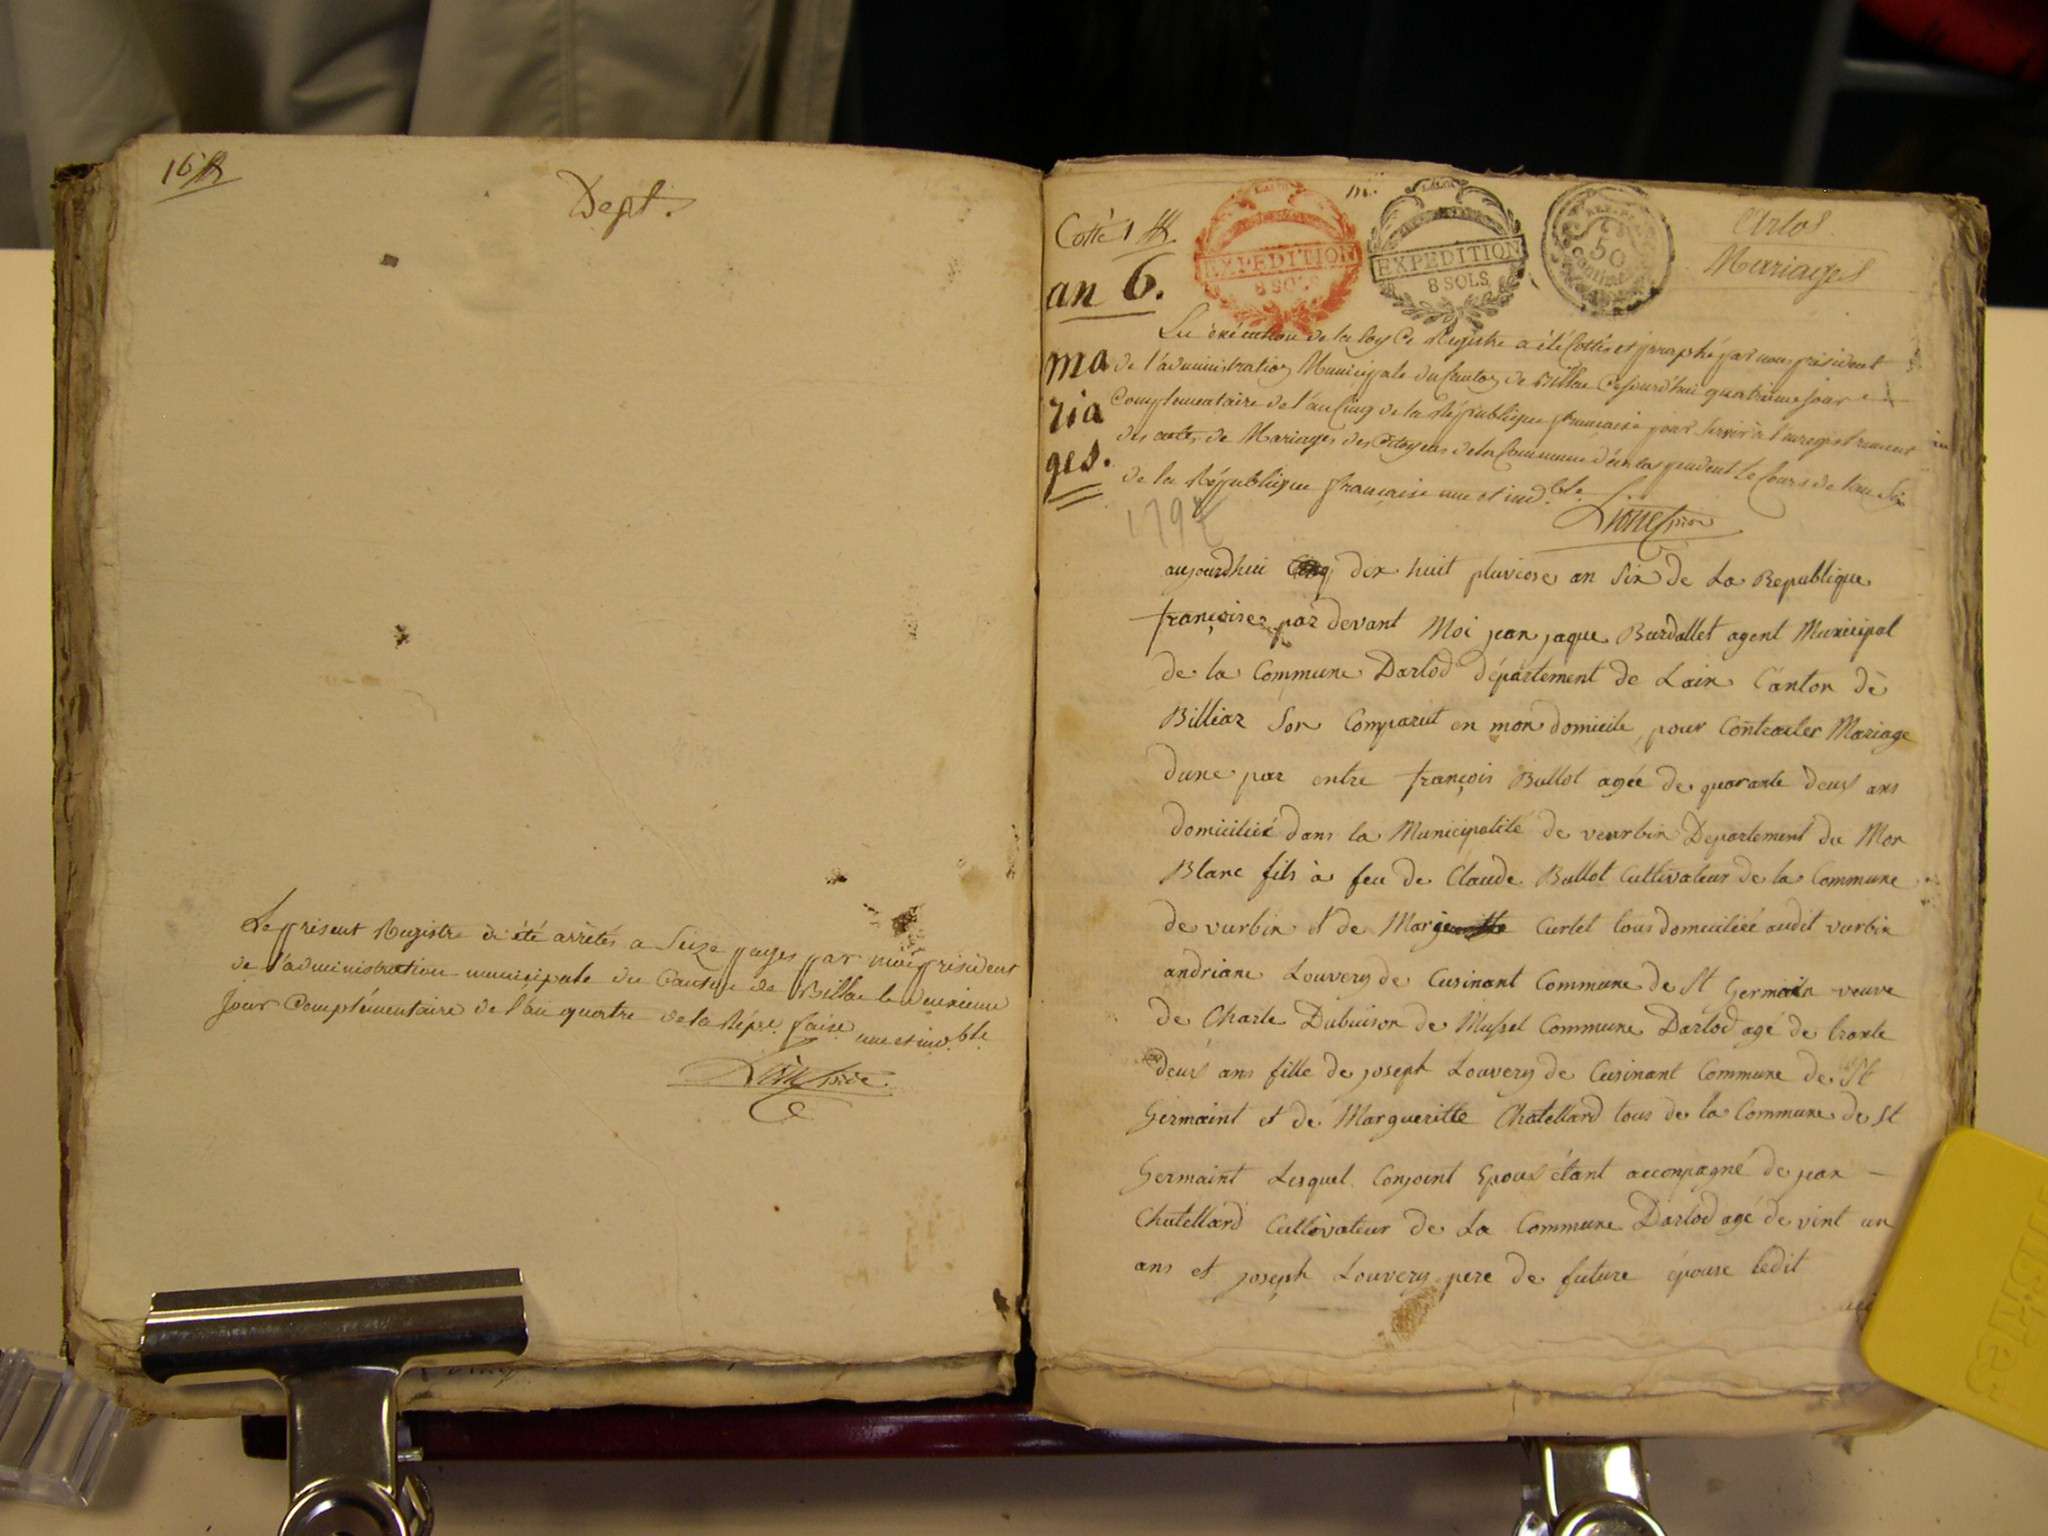 16
Dept.
Le présent Registre a été arrêtés a Seize pages par moi président
de l'administration municipale du Canton de Billia le deuxieme
jour Complémentaire de l'an quatre de la Répe. faise. une et ind.ble
Cotté 1
an 6.
ma
ria
ges.
EXPEDITION
8 SOLS
EXPEDITION
8 SOLS
50
Centimes
Arlod
Mariages
En exécution de la loy Ce Registre a été Cottés et paraphé par nous président
de l'administration Municipale du Canton de Billia Cejourd'hui quatrieme jour
Complementaire de l'an Cinq de la République française pour servir a l'enregistrement
des actes de Mariages des Citoyens de la Commune d'arlos pendant le Cours de l'an Six
de la République française une et ind.ble
aujourdhui dix huit pluviose an Six de La Republique
françoise par devant Moi jean jaque Burdallet agent Municipal
de la Commune Darlod département de Lain Canton de
Billiaz Son Comparut en mon domicile, pour Contracter Mariage
dune par entre françois Bullot agée de quarante deux ans
domicilié dans la Municipalité de veurbin Departement du Mon
Blanc fils à feu de Claude Bullot Cultivateur de la Commune
de vurbin et de Curtet tous domicilié audit vurbin
andriane Louvery de Cusinant Commune de St Germain veuve
de Charle Dubuison de Mussel Commune Darlod agé de trante
deux ans fille de joseph Louvery de Cusinant Commune de St
Germaint et de Margueritte Chatellard tous de la Commune de St
Germaint Lesquel Conjoint Epoux étant acconpagné de jean
Chatellard Cultivateur de La Commune Darlod agé de vint un
ans et joseph Louvery pere de future épouse ledit